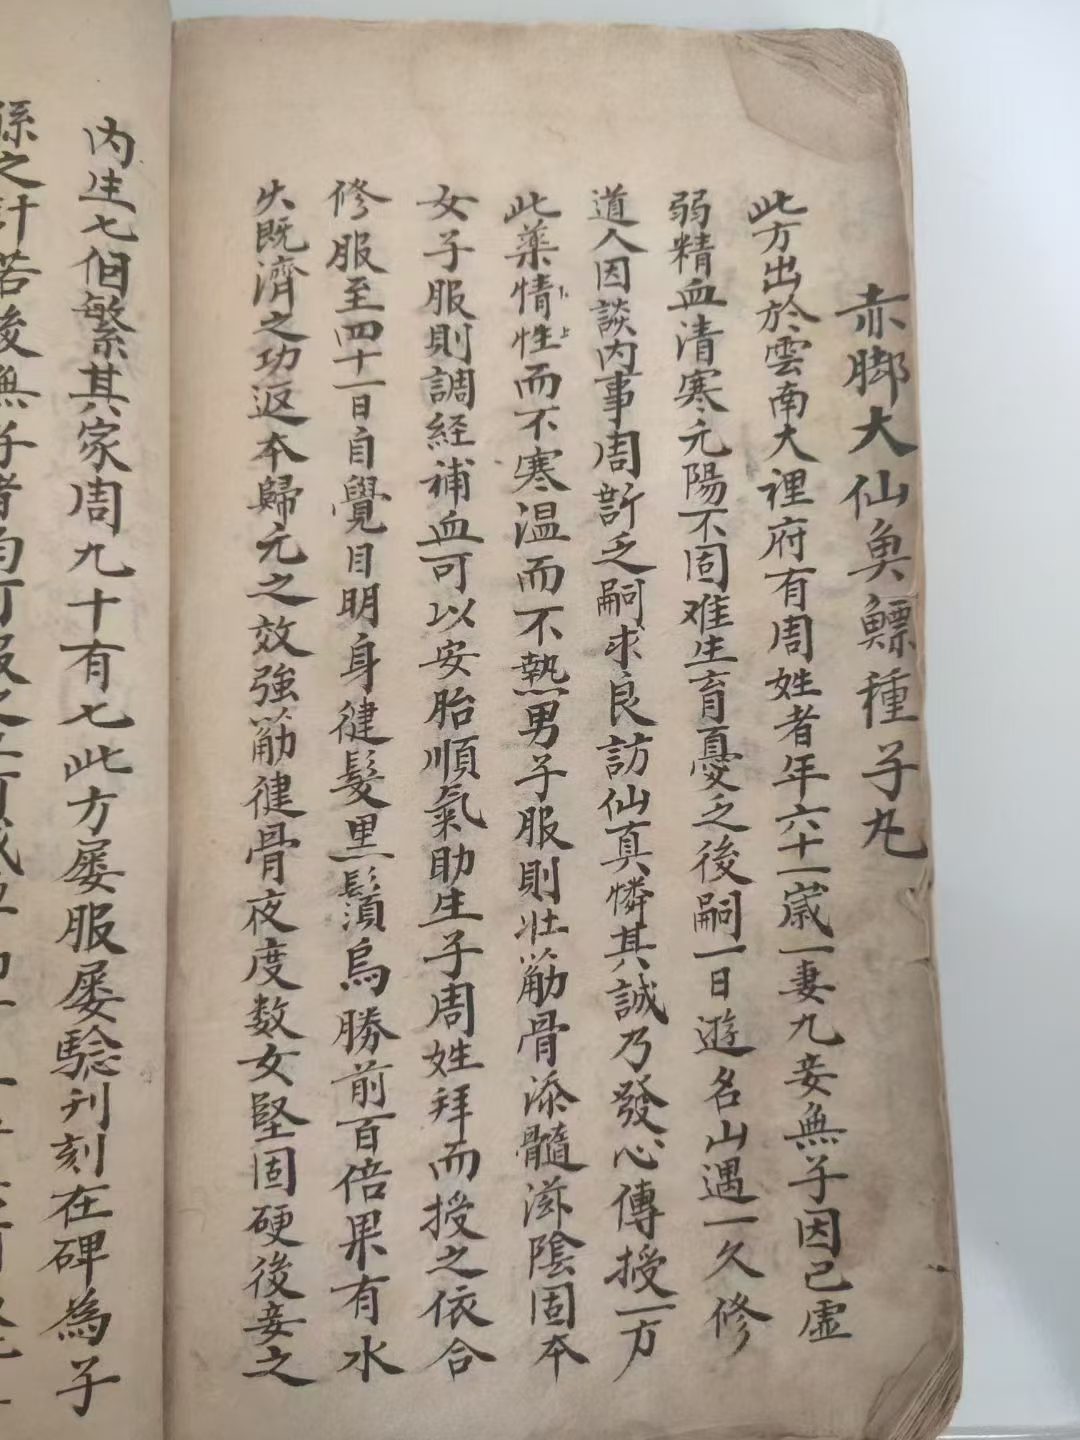 赤脚大仙鱼鰾種子丸
此方出於雲南大裡府有周姓者年六十一歲一妻九妾無子因己虛
弱精血清寒元陽不固难生育憂乏後嗣一日遊名山遇一久修
道人因談内事周訴乏嗣求良訪仙真憐其誠乃發心傳授一方
此藥情性而不寒温而不熱男子服則壯筋骨添髓滋陰固本
女子服則調経補血可以安胎順氣助生子周姓拜而授之依合
修服至四十一日自覺目明身健髮黒鬚烏勝前百倍果有水
火既濟之功返本歸元之效強筋健骨夜度数女堅固硬後妾之
内生七個繁其家周九十有七此方屡服屡騐刋刻在碑為子
孫之計若後無子者